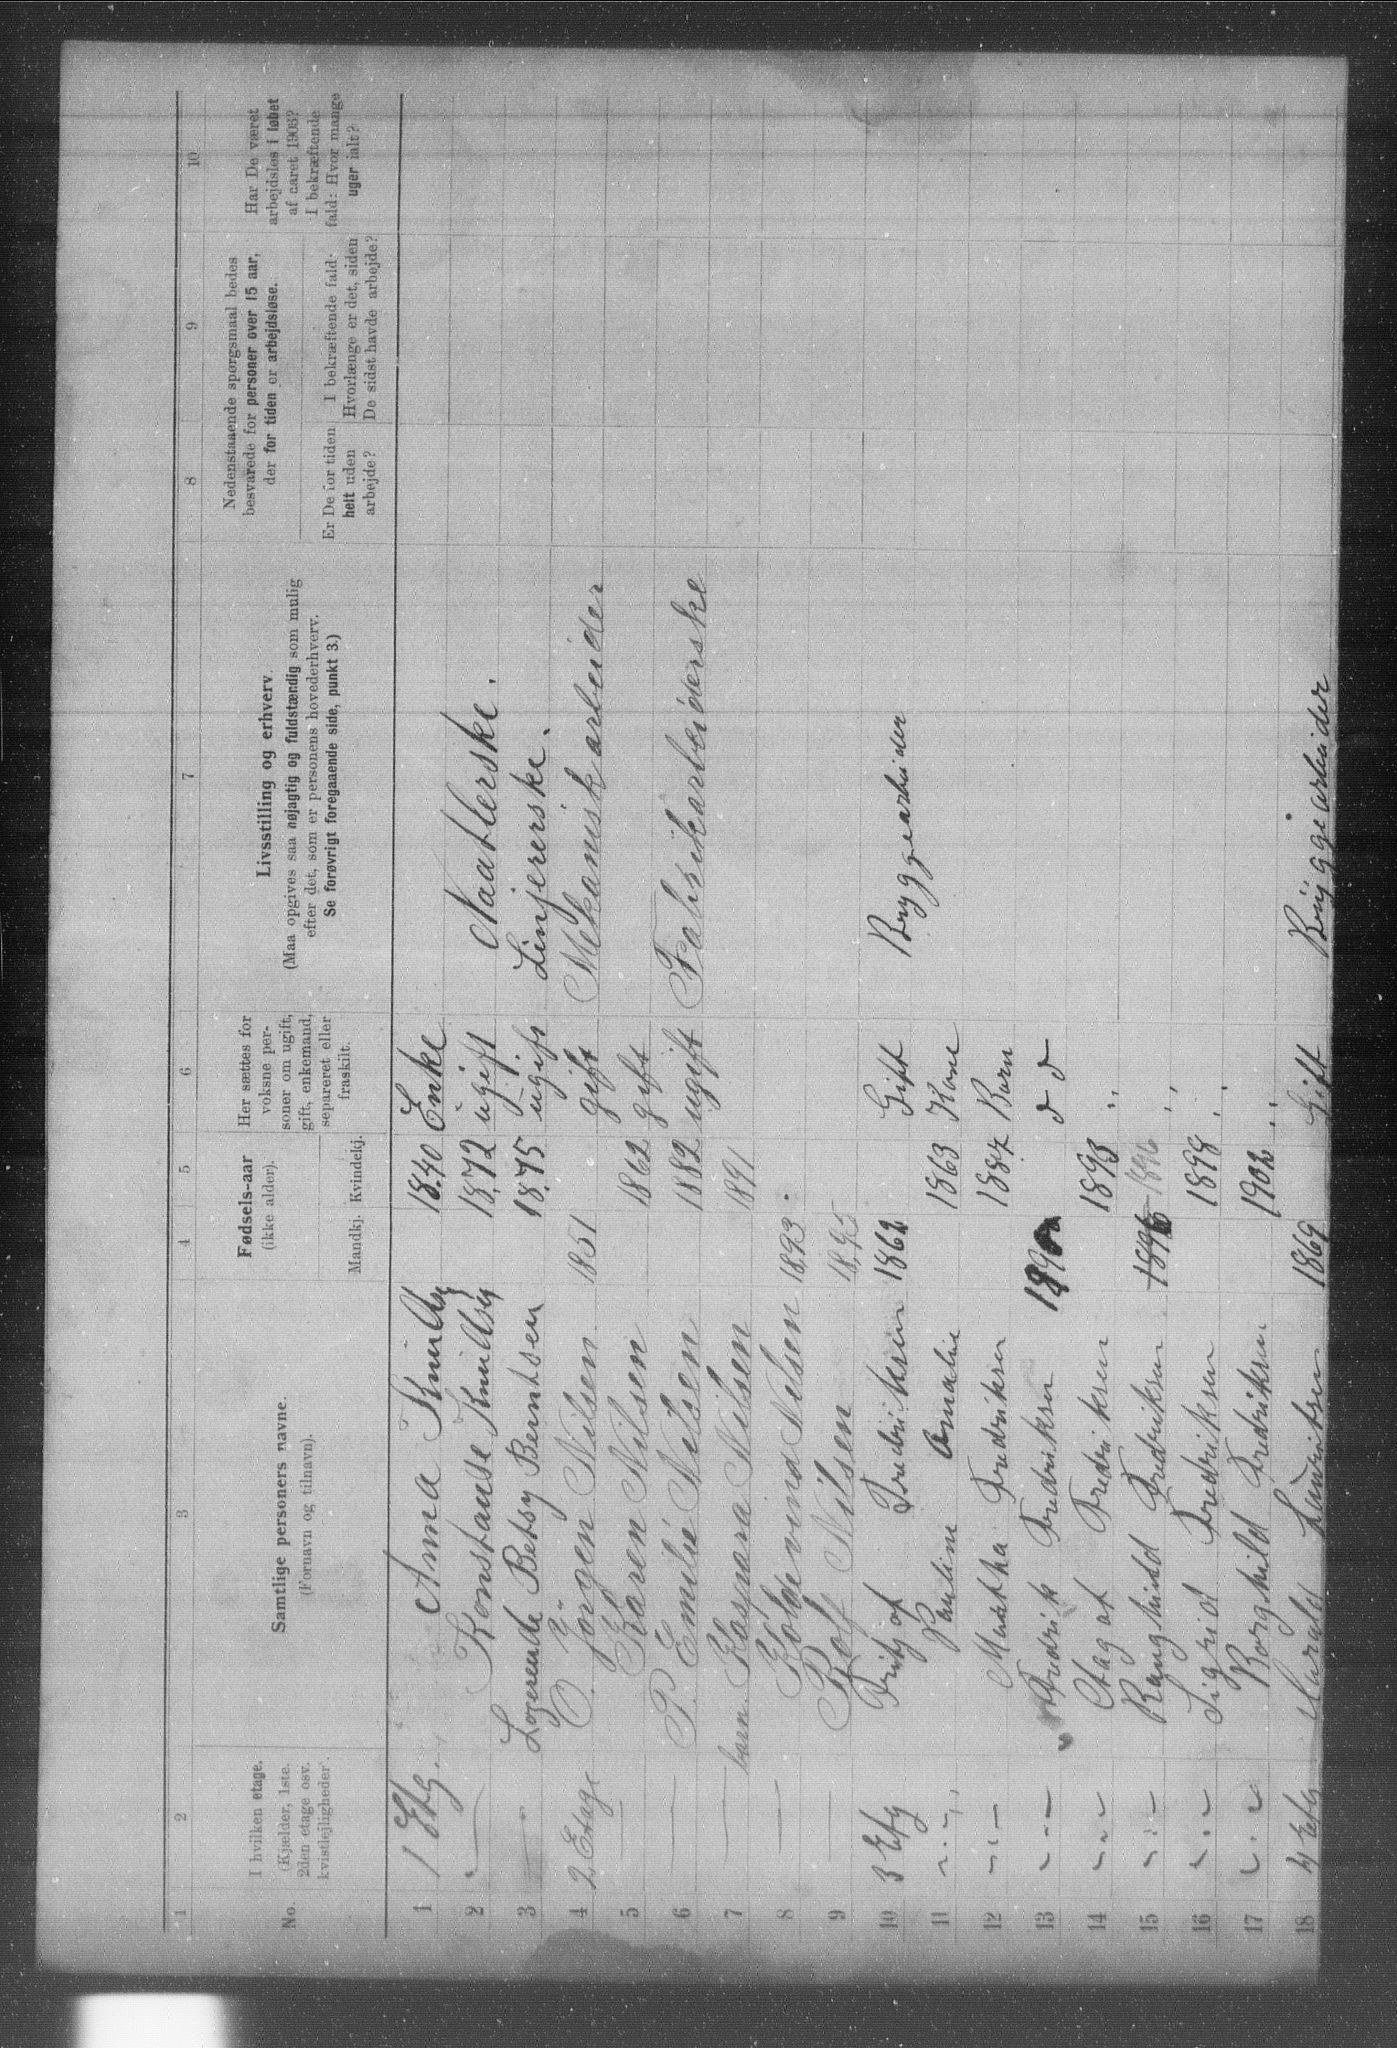 1 2 3 4 5 6 7 8 9 10
No.
I hvilken etage.
(Kjælder, 1ste.
2den etage osv.
kvistlejligheder.
Samtlige personers navne.
(Fornavn og tilnavn).
Fødsels-aar
(ikke alder).
Mandkj. Kvindekj.
Her sættes for
voksne per-
soner om ugift,
gift, enkemand,
separeret eller
fraskilt.
Livsstilling og erhverv.
(Maa opgives saa nøjagtig og fuldstændig som mulig
efter det, som er personens hovederhverv.
Se forøvrigt foregaaende side, punkt 3.)
Nedenstaaende spørgsmaal bedes
besvarede for personer over 15 aar,
der for tiden er arbejdsløse.
Er De for tiden
helt uden
arbejde?
I bekræftende fald:
Hvorlænge er det, siden
De sidst havde arbejde?
Har De været
arbejdsløs i løbet
af aaret 1903?
I bekræftende
fald: Hvor mange
uger ialt?
1 1 Etg. Anna 1840 Enke
2 Konstanse 1872 ugift Naatlerske.
3 Logerende Betsy Berntsen 1875 ugift Linjererske.
4 2 Etage O. Jörgen Nilsen 1851 gift Mekanisk arbeider
5 — Karen Nilsen 1862 gift
6 — P. Emilie Nilsen 1882 ugift Fabrikarbeiderske
7 — barn Kaspara Nilsen 1891
8 — Koldevind Nilsen 1893.
9 — Rolf Nilsen 1895
10 3 Etg Fritjof Fredriksen 1862 Gift Bryggearbeider
11 Pauline Amalie 1863 Kone
12 Martha Fredriksen 1887 Barn
13 Fredrik Fredriksen
14 Aagot Fredriksen 1893 "
15 Ranghild Fredriksen 1896 "
16 Sigrid Fredriksen 1898 "
17 Borghild Fredriksen 1902 "
18 4 Etg Harald Lauritsen 1869 Gift Bryggearbeider